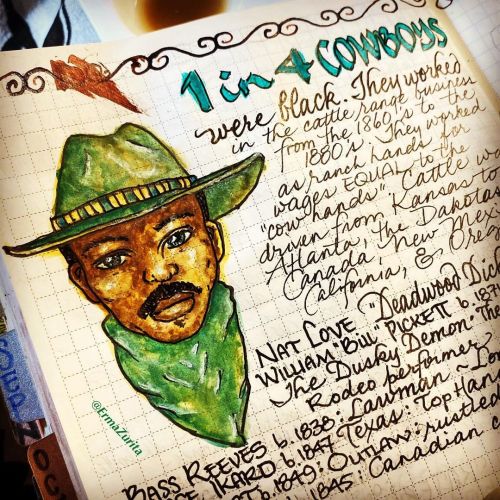 1 in 4 COWBOYS
were Black. They worked
in the cattle range business
from the 1860's to the
1880's. They worked
as ranch hands for
wages EQUAL to the
"cow hands". Cattle wa
driven from Kansas to
Atlanta, the Dakotas
Canada, New Mex
California, & Oreg
NAT LOVE "Deadwood Dick
WILLIAM "Bill" PICKETT b. 187
The Dusky Demon: The
Rodeo performer
BASS REEVES b. 1838: Lawman - Lo
IKARD b. 1847 Texas: Top Han
b. 1849: OUTLAW: rustled
1845: Canadian c
@ErmaZurita